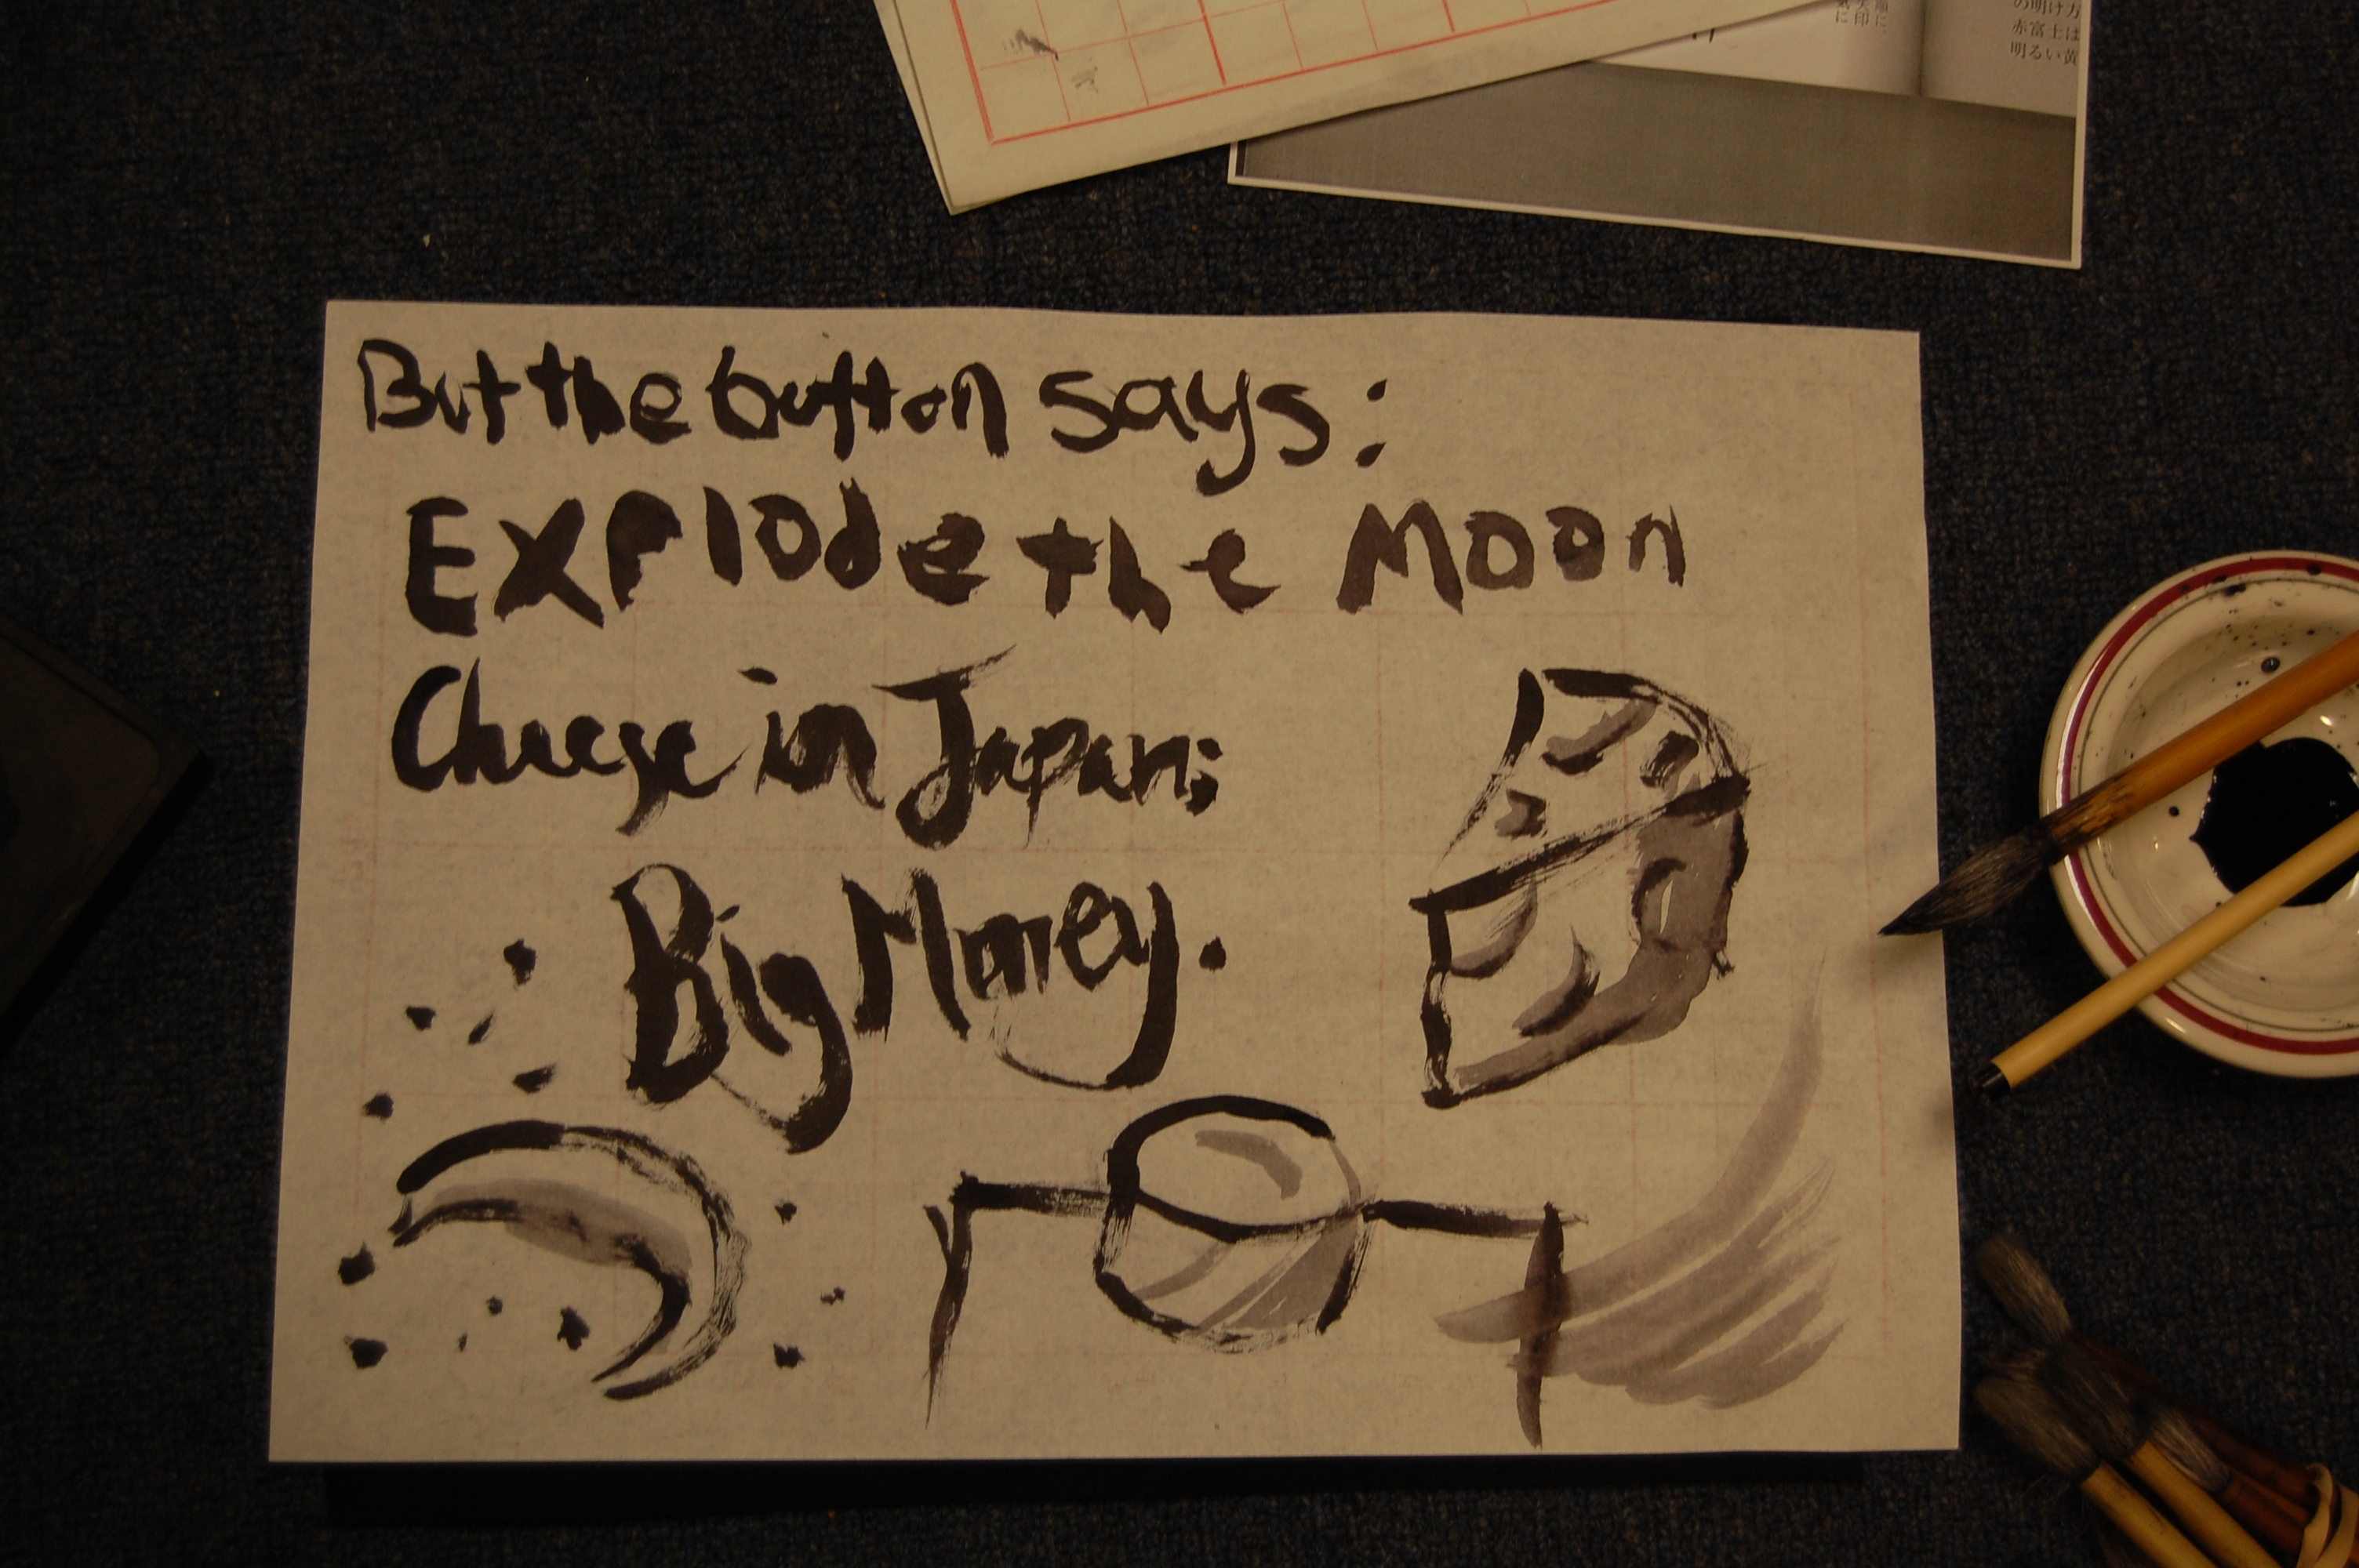 の明け方
赤富士は
明るい黄
But the button says:
Explode the Moon
Cheese in Japan:
Big Money.